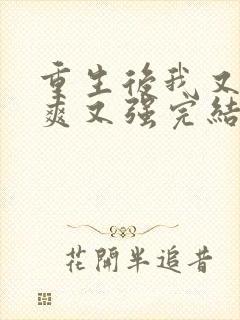 重生後我又
爽又強完結
花開半追昔